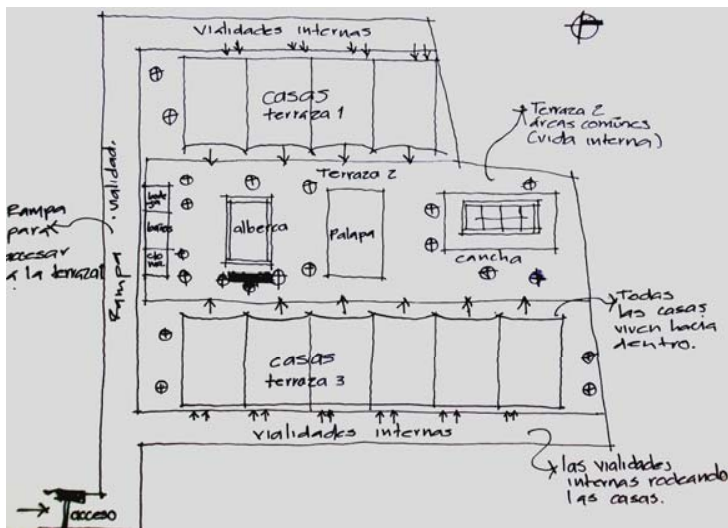 vialidades internas
casas
terraza 1
Terraza 2
áreas comúnes
(vida interna)
Terraza 2
Rampa
para
accesar
a la terraza1
Rampa . vialidad.
baños
alberca
Palapa
cancha
Todas
las casas
viven hacia
dentro.
casas
terraza 3
vialidades internas
las vialidades
internas rodeando
las casas.
acceso